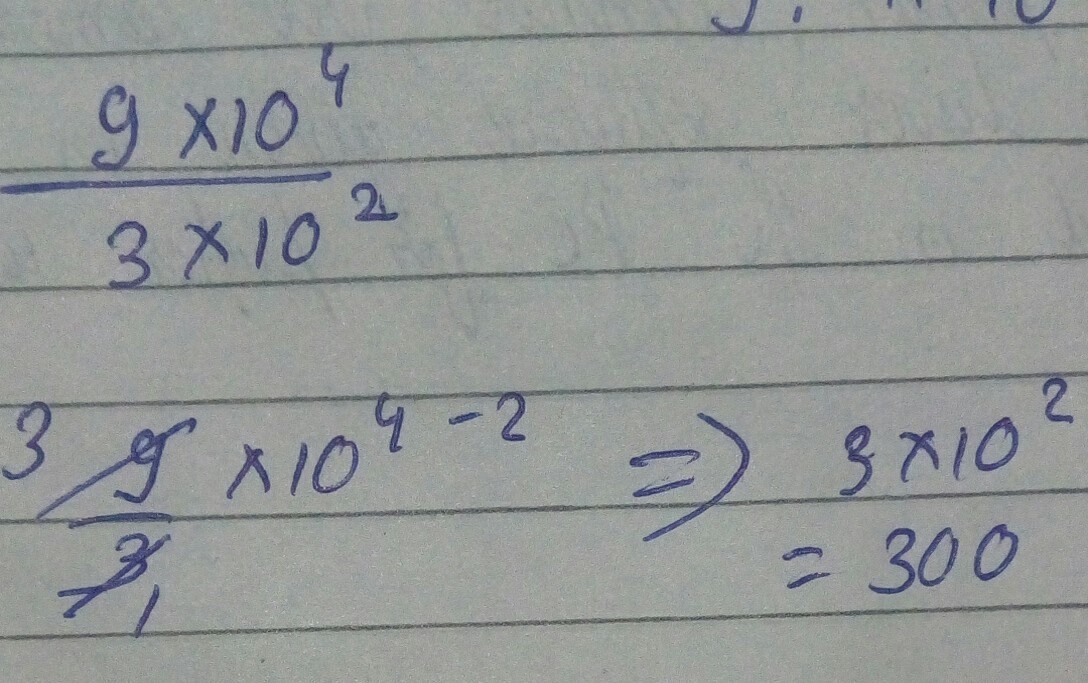 9 × 10⁴
3 × 10²
3 9 × 10⁴⁻² ⇒ 3 × 10²
3 1
= 300